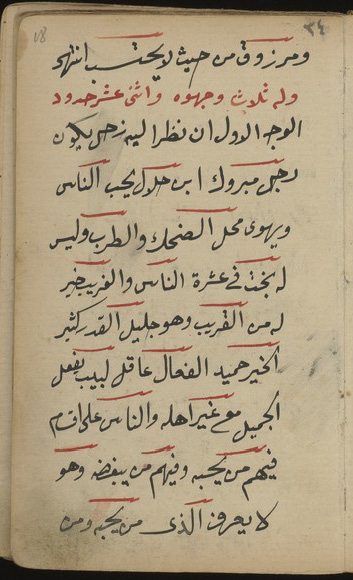 ٣٤
ومرزوق من حيث لا يحتسب انتهى
وله ثلاث وجهوه واثنى عشر حدود
الوجه الاول ان نظر اليه زحل يكون
رجل مبروك ابن حلال يحب الناس
ويهوى محل الضحك والطرب وليس
له بخت في عشرة الناس والغريب خير
له من القريب وهو جليل القدر كثير
الخير حميد الفعال عاقل لبيب يفعل
الجميل مع غير اهله والناس على اقسام
فيهم من يحبه وفيهم من يبغضه وهو
لا يعرف الذى من يحبه ومن